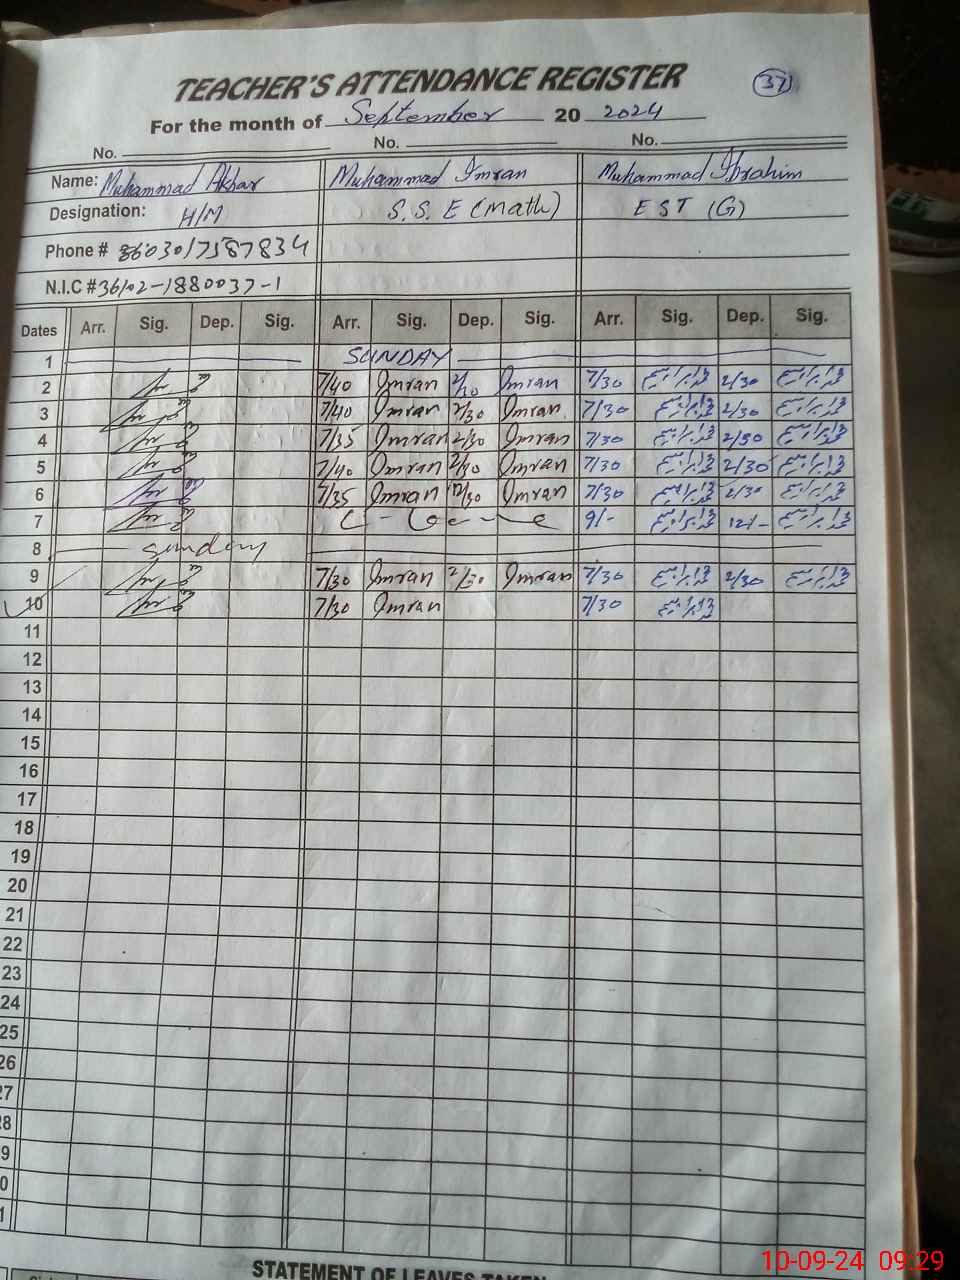 TEACHER'S ATTENDANCE REGISTER
37
For the month of September 20 2024
No. No. No.
Name: Muhammad Akbar Muhammad Imran Muhammad Ibrahim
Designation: H/M S.S.E (Math) EST (G)
Phone # 03017587834
N.I.C # 36102-1880037-1
Dates Arr. Sig. Dep. Sig. Arr. Sig. Dep. Sig. Arr. Sig. Dep. Sig.
1 SUNDAY
2 7/40 Imran 2/30 Imran 7/30 2/30
3 7/40 Imran 2/30 Imran 7/30 2/30
4 7/35 Imran 2/30 Imran 7/30 2/30
5 7/40 Imran 2/30 Imran 7/30 2/30
6 7/35 Imran 2/30 Imran 7/30 2/30
7 9/- 12/-
8 Sunday
9 7/30 Imran 2/30 Imran 7/30 2/30
10 7/30 Imran 7/30
11
12
13
14
15
16
17
18
19
20
21
22
23
24
25
26
27
28
9
0
1
STATEMENT OF LEAVES TAKEN
10-09-24 09:29